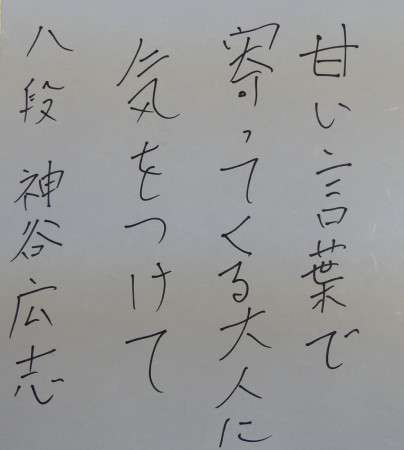 甘い言葉で
寄ってくる大人に
気をつけて
八段 神谷広志